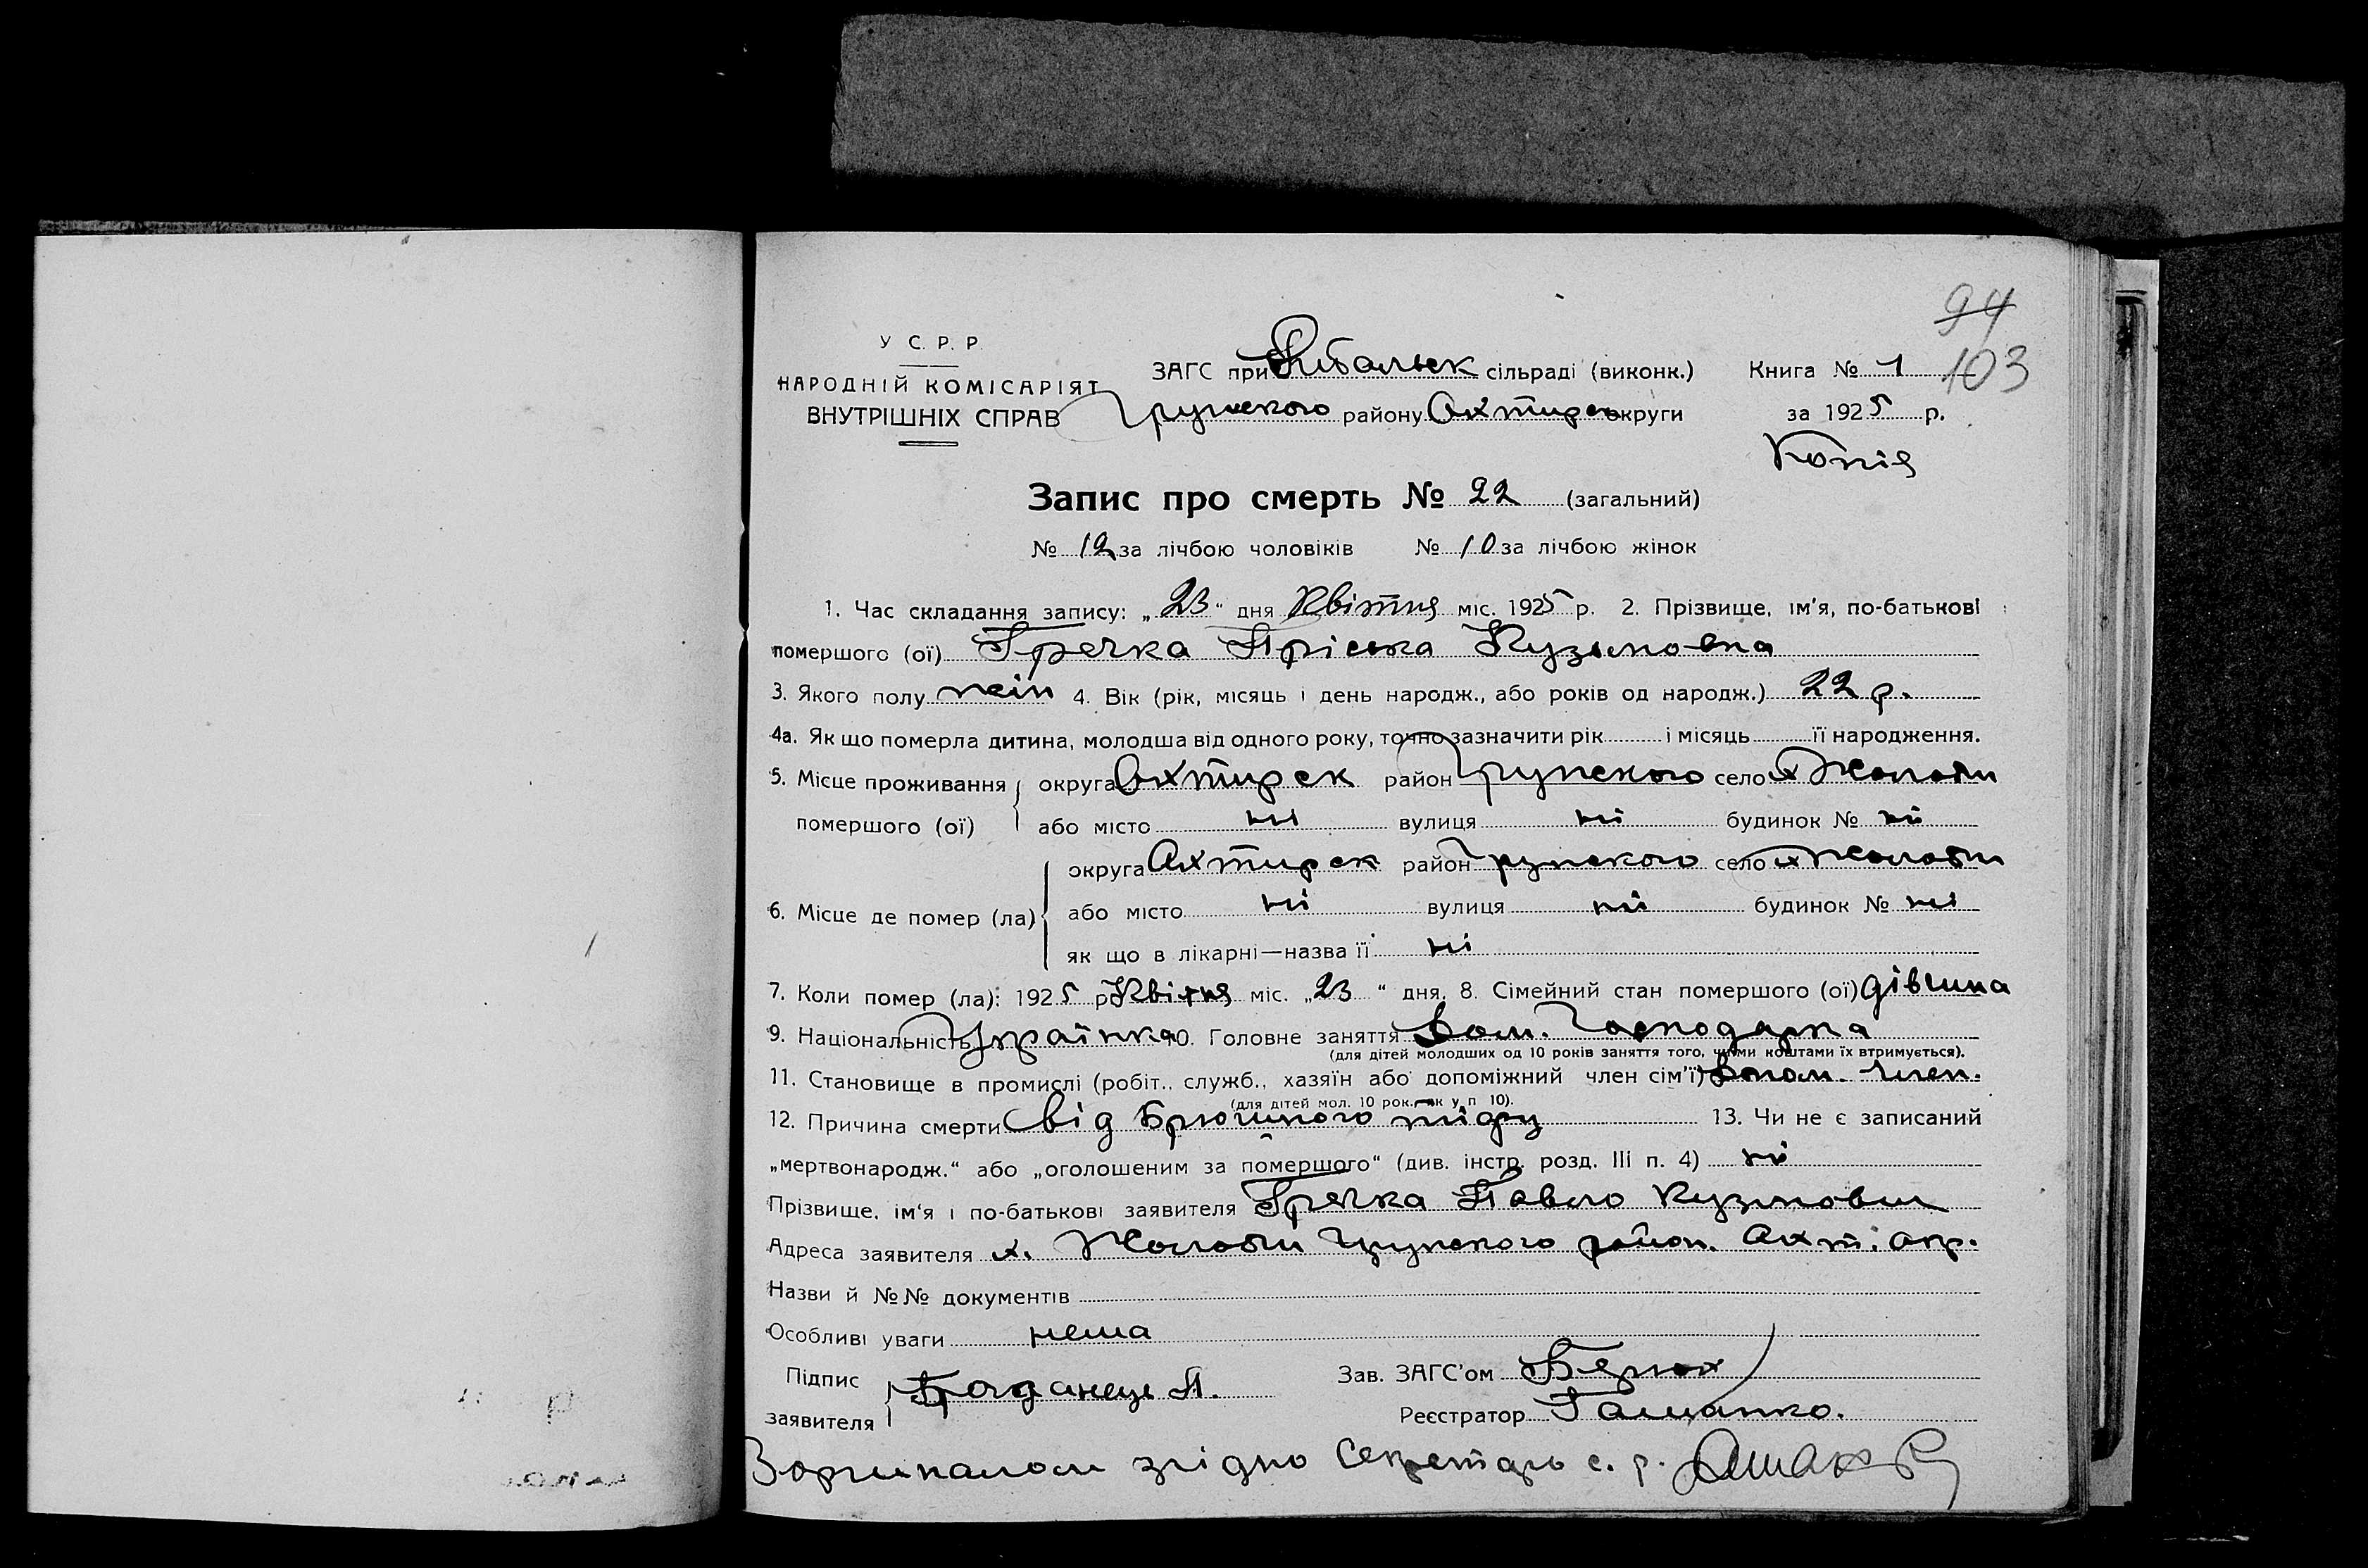 94
103
У С. Р. Р.
НАРОДНІЙ КОМІСАРІЯТ
ВНУТРІШНІХ СПРАВ
ЗАГС при Рибальск сільраді (виконк.)
Грунського району Охтирск округи
Книга № 1
за 1925 р.
Копія
Запис про смерть № 22 (загальний)
№ 12 за лічбою чоловіків № 10 за лічбою жінок
1. Час складання запису: „23" дня Квітня міс. 1925 р. 2. Прізвище, ім'я, по-батькові
помершого (ої) Гречка Пріська Кузьмовна
3. Якого полу жін 4. Вік (рік, місяць і день народж., або років од народж.) 22 р.
4а. Як що померла дитина, молодша від одного року, точно зазначити рік і місяць її народження.
5. Місце проживання округа Охтирск район Грунского село х
помершого (ої) або місто ні вулиця ні будинок № ні
округа Охтирск район Грунского село х
6. Місце де помер (ла) або місто ні вулиця ні будинок № ні
як що в лікарні—назва її ні
7. Коли помер (ла): 1925 р Квітня міс. „23" дня. 8. Сімейний стан помершого (ої) дівчина
9. Національність Українка 10. Головне заняття Дом. Господарка
(для дітей молодших од 10 років заняття того, чиїми коштами їх втримується).
11. Становище в промислі (робіт., служб., хазяїн або допоміжний член сім'ї) Допом. член.
(для дітей мол. 10 рок. як у п 10).
12. Причина смерти від Брюшного тифу 13. Чи не є записаний
„мертвонародж." або „оголошеним за помершого" (див. інстр. розд. III п. 4) ні
Прізвище, ім'я і по-батькові заявителя Гречка Павло Кузьмович
Адреса заявителя х. Грунского район. Охт. окр.
Назви й №№ документів
Особливі уваги нема
Підпис
заявителя Богданець П.
Зав. ЗАГС'ом
Реєстратор
З оригиналом згідно Секретарь с. р.